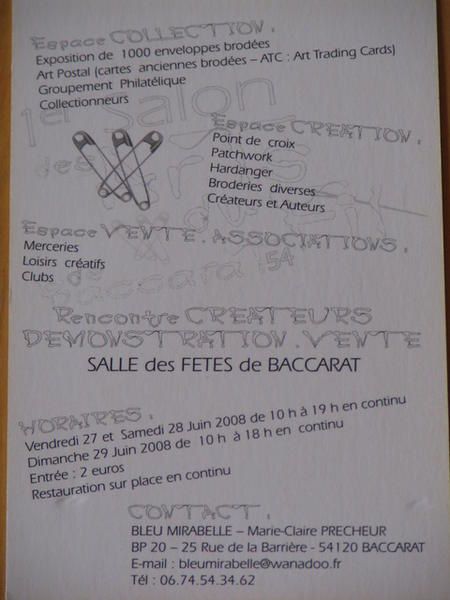 Espace COLLECTION.
Exposition de 1000 enveloppes brodées
Art Postal (cartes anciennes brodées – ATC : Art Trading Cards)
Groupement Philatélique
Collectionneurs
1er Salon
des
Espace CREATION.
Point de croix
Patchwork
Hardanger
Broderies diverses
Créateurs et Auteurs
Espace VENTE. ASSOCIATIONS.
Merceries
Loisirs créatifs
Clubs
baccara 54
Rencontre CREATEURS
DEMONSTRATION. VENTE
SALLE des FETES de BACCARAT
HORAIRES.
Vendredi 27 et Samedi 28 Juin 2008 de 10 h à 19 h en continu
Dimanche 29 Juin 2008 de 10 h à 18 h en continu
Entrée : 2 euros
Restauration sur place en continu
CONTACT.
BLEU MIRABELLE – Marie-Claire PRECHEUR
BP 20 – 25 Rue de la Barrière - 54120 BACCARAT
E-mail : bleumirabelle@wanadoo.fr
Tél : 06.74.54.34.62